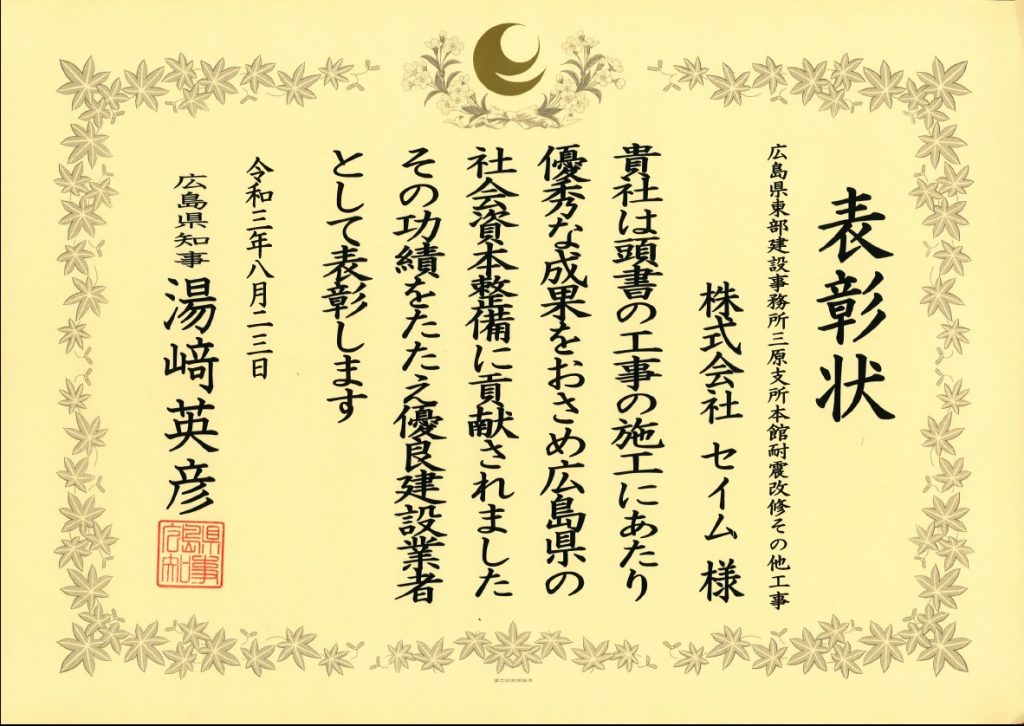 表彰状
広島県東部建設事務所三原支所本館耐震改修その他工事
株式会社 セイム 様
貴社は頭書の工事の施工にあたり
優秀な成果をおさめ広島県の
社会資本整備に貢献されました
その功績をたたえ優良建設業者
として表彰します
令和三年八月二三日
広島県知事 湯﨑英彦